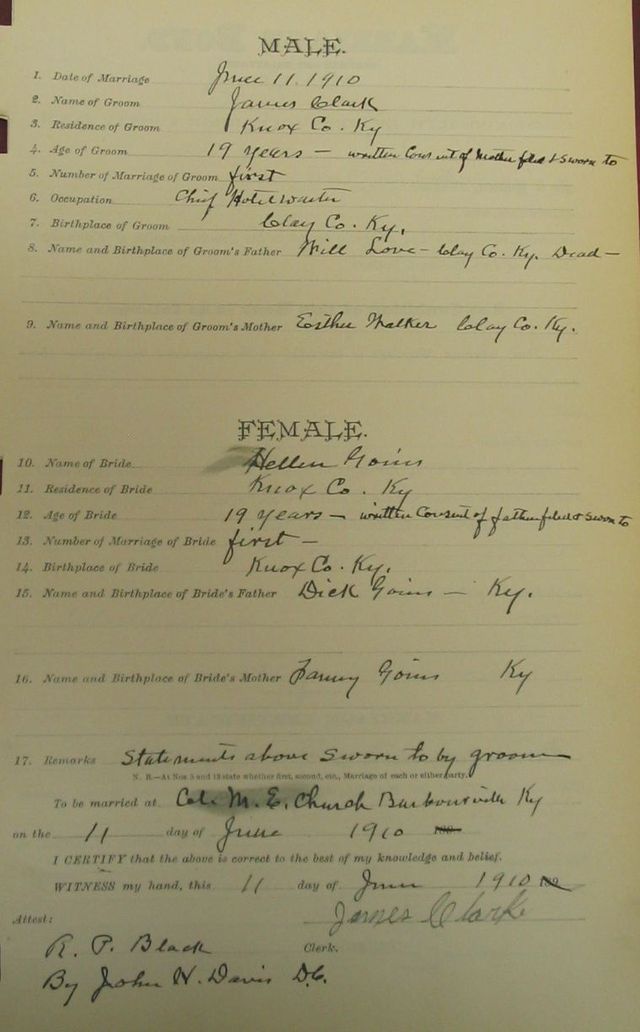 MALE.
1. Date of Marriage June 11. 1910
2. Name of Groom James Clark
3. Residence of Groom Knox Co. Ky
4. Age of Groom 19 years — written Consent of Mother filed & sworn to
5. Number of Marriage of Groom first
6. Occupation Chief Hotel waiter
7. Birthplace of Groom Clay Co. Ky,
8. Name and Birthplace of Groom's Father Will Love — Clay Co. Ky. Dead —
9. Name and Birthplace of Groom's Mother Esther Walker Clay Co. Ky.
FEMALE.
10. Name of Bride Hellen Goins
11. Residence of Bride Knox Co. Ky
12. Age of Bride 19 years — written Consent of father filed & sworn to
13. Number of Marriage of Bride first —
14. Birthplace of Bride Knox Co. Ky,
15. Name and Birthplace of Bride's Father Dick Goins — Ky.
16. Name and Birthplace of Bride's Mother Fanny Goins Ky
17. Remarks Statements above sworn to by groom
N. B.—At Nos 5 and 13 state whether first, second, etc., Marriage of each or either party.
To be married at Col. M. E. Church Barbourville Ky
on the 11 day of June 1910 189
I CERTIFY that the above is correct to the best of my knowledge and belief.
WITNESS my hand, this 11 day of June 1910 189
James Clark
Attest:
R. P. Black Clerk.
By John H. Davis D.C.